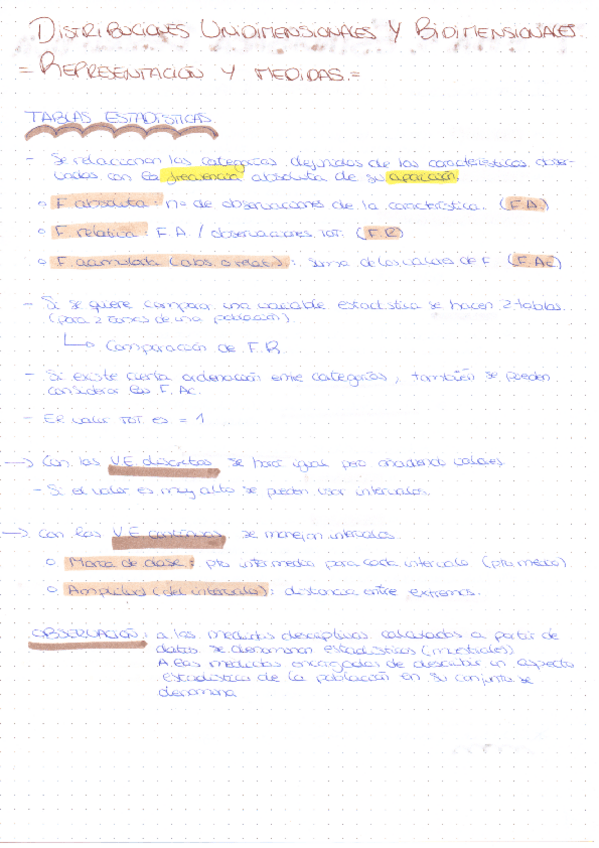 DISTRIBUCIONES UNIDIMENSIONALES Y BIDIMENSIONALES
= REPRESENTACIÓN Y MEDIDAS =
TABLAS ESTADÍSTICAS
- Se relacionan las categorías definidas de las características obser-
vadas con la frecuencia absoluta de su aparición.
o F absoluta: nº de observaciones de la característica. (F.A)
o F. relativa: F.A. / observaciones TOT. (F.R)
o F. acumulada (abs. o relat.): suma de los valores de F. (F.Ac)
- Si se quiere comparar una variable estadística se hacen 2 tablas.
(para 2 de una población)
↳ Comparación de F.R.
- Si existe cierta ordenación entre categorías, también se pueden
considerar las F.Ac.
- El valor TOT es = 1
→ Con las VE discretas se hace igual pero añadiendo valores.
- Si el valor es muy alto se pueden usar intervalos.
→ Con las V.E continuas se manejan intervalos.
o Marca de clase: pto intermedio para cada intervalo (pto medio).
o Amplitud (del intervalo): distancia entre extremos.
OBSERVACIÓN: a las medidas descriptivas calculadas a partir de
datos se denominan estadísticos (muestrales)
A las medidas encargadas de describir un aspecto
estadístico de la población en su conjunto se
denomina